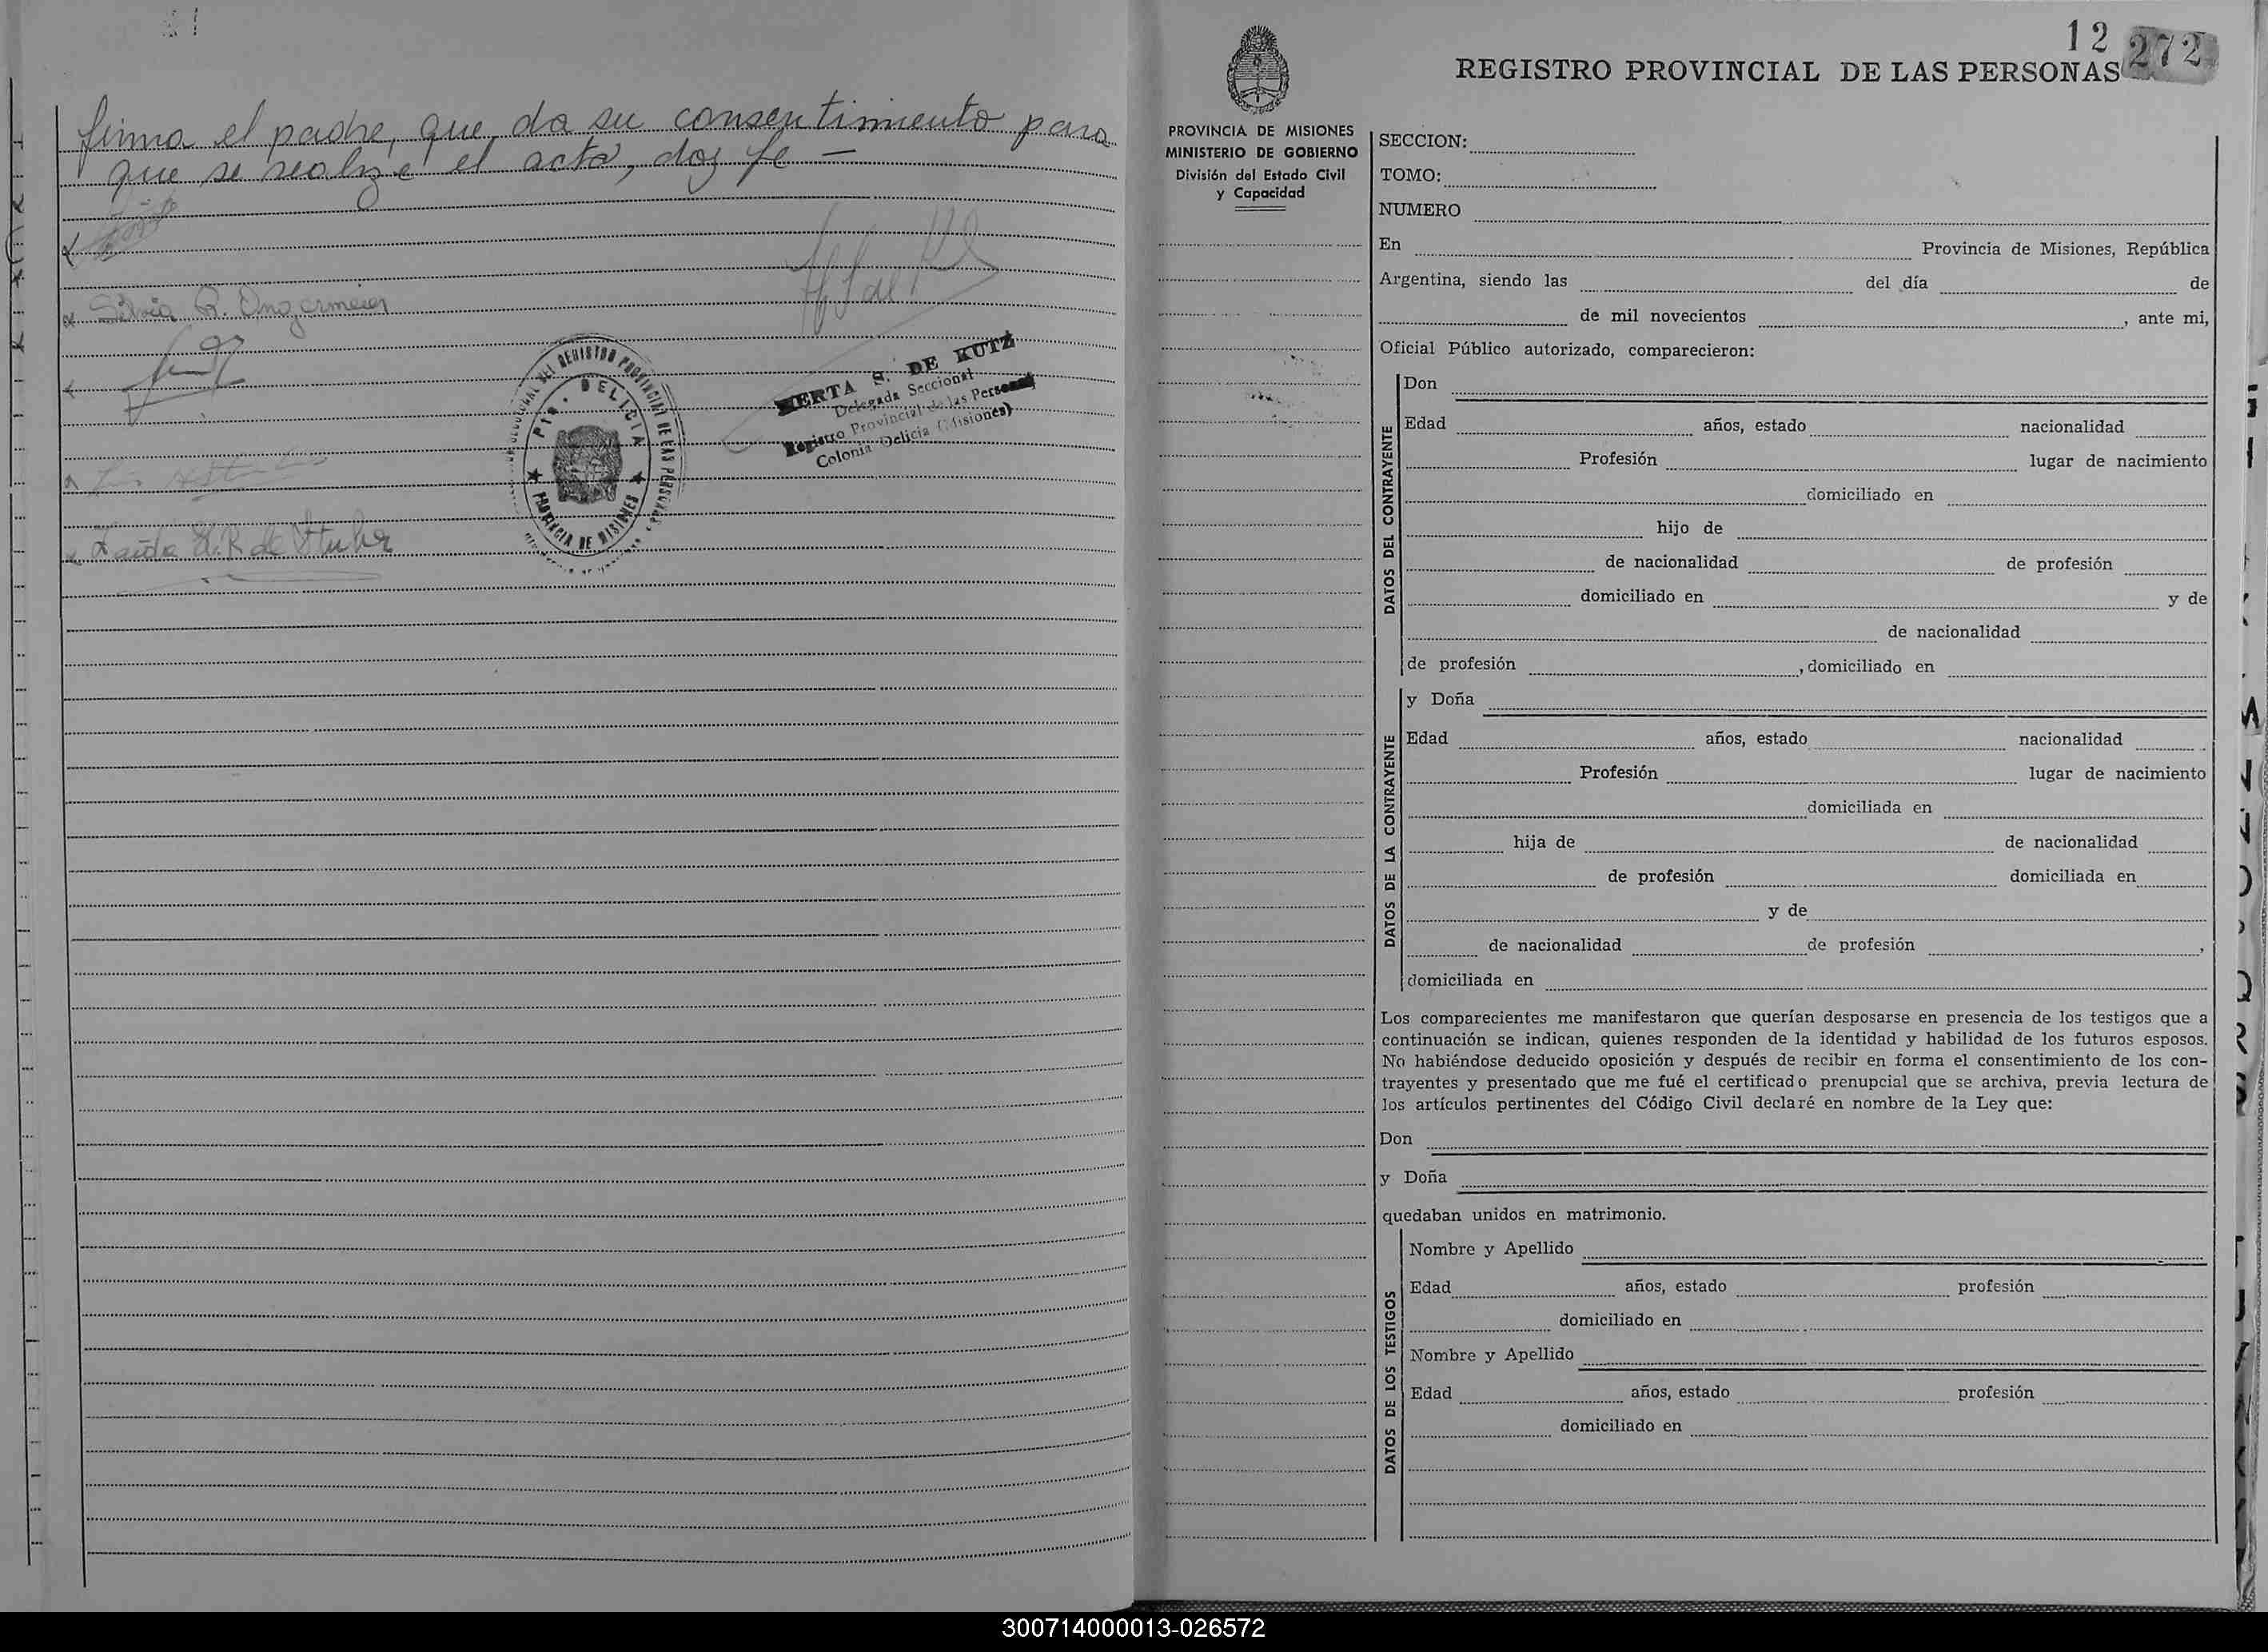 firma el padre, que da su consentimiento para
que se realize el acto, doy fe —
Silvia R. Ongermeier
HERTA S. DE KUTZ
Delegada Seccional
Registro Provincial de las Personas
Colonia Delicia (Misiones)
REGISTRO PROVINCIAL DE LAS PERSONAS
Pto. DELICIA
PROVINCIA DE MISIONES
de Stuber
12 272
REGISTRO PROVINCIAL DE LAS PERSONAS
PROVINCIA DE MISIONES
MINISTERIO DE GOBIERNO
División del Estado Civil
y Capacidad
SECCION:
TOMO:
NUMERO
En Provincia de Misiones, República
Argentina, siendo las del día de
de mil novecientos , ante mi,
Oficial Público autorizado, comparecieron:
DATOS DEL CONTRAYENTE
Don
Edad años, estado nacionalidad
Profesión lugar de nacimiento
domiciliado en
hijo de
de nacionalidad de profesión
domiciliado en y de
de nacionalidad
de profesión , domiciliado en
DATOS DE LA CONTRAYENTE
y Doña
Edad años, estado nacionalidad
Profesión lugar de nacimiento
domiciliada en
hija de de nacionalidad
de profesión domiciliada en
y de
de nacionalidad de profesión ,
domiciliada en
Los comparecientes me manifestaron que querían desposarse en presencia de los testigos que a
continuación se indican, quienes responden de la identidad y habilidad de los futuros esposos.
No habiéndose deducido oposición y después de recibir en forma el consentimiento de los con-
trayentes y presentado que me fué el certificado prenupcial que se archiva, previa lectura de
los artículos pertinentes del Código Civil declaré en nombre de la Ley que:
Don
y Doña
quedaban unidos en matrimonio.
DATOS DE LOS TESTIGOS
Nombre y Apellido
Edad años, estado profesión
domiciliado en
Nombre y Apellido
Edad años, estado profesión
domiciliado en
300714000013-026572